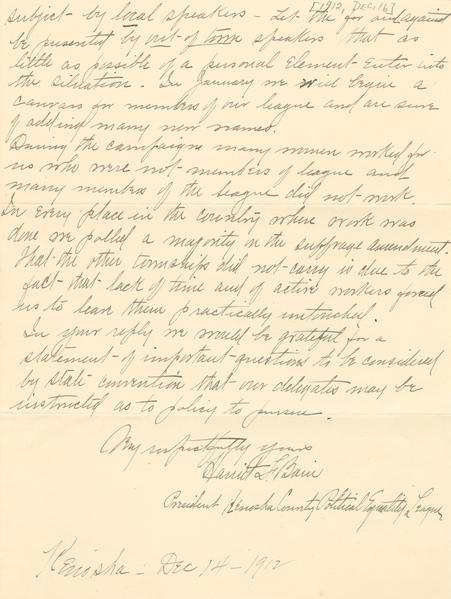 [1912, Dec. 16]
subject - by local speakers - Let the for and against
be presented by out of town speakers that as
little as possible of a personal element enter into
the situation. In January we will begin a
canvass for members of our league and are sure
of adding many new names.
During the campaign many women worked for
us who were not members of league and
many members of the league did not work.
In every place in the country where work was
done we polled a majority on the suffrage amendment.
That the other townships did not carry is due to the
fact that lack of time and of active workers forced
us to leave them practically untouched.
In your reply we would be grateful for a
statement of important questions to be considered
by state convention that our delegates may be
instructed as to policy to pursue.
Very respectfully yours
Harriet L. Bain
President Kenosha County Political Equality League
Kenosha - Dec 14 - 1912